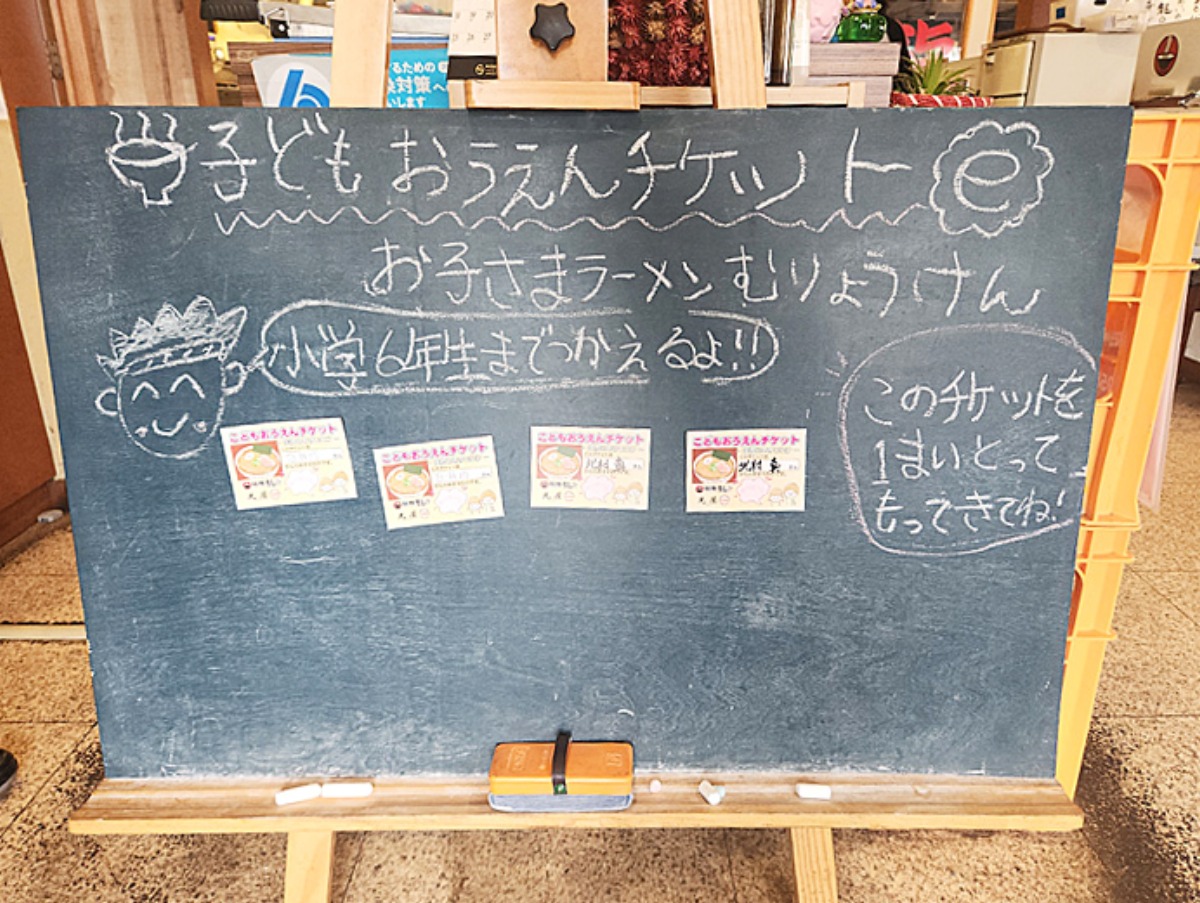 るための
対策へ
します
子どもおうえんチケット
お子さまラーメンむりょうけん
小学6年生までつかえるよ!!
このチケットを
1まいとって
もってきてね!
こどもおうえんチケット
こどもおうえんチケット
こどもおうえんチケット
こどもおうえんチケット